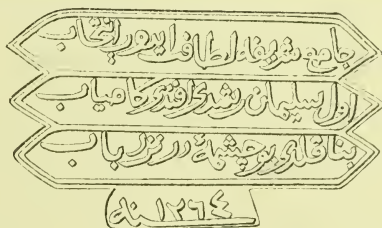 جامع شریفه لطافت ایدوب انتخاب
اول سلیمان رشدی افندی کامیاب
بنا قلدی بو چشمهٔ در نزد باب
سنه ١٢٦٤